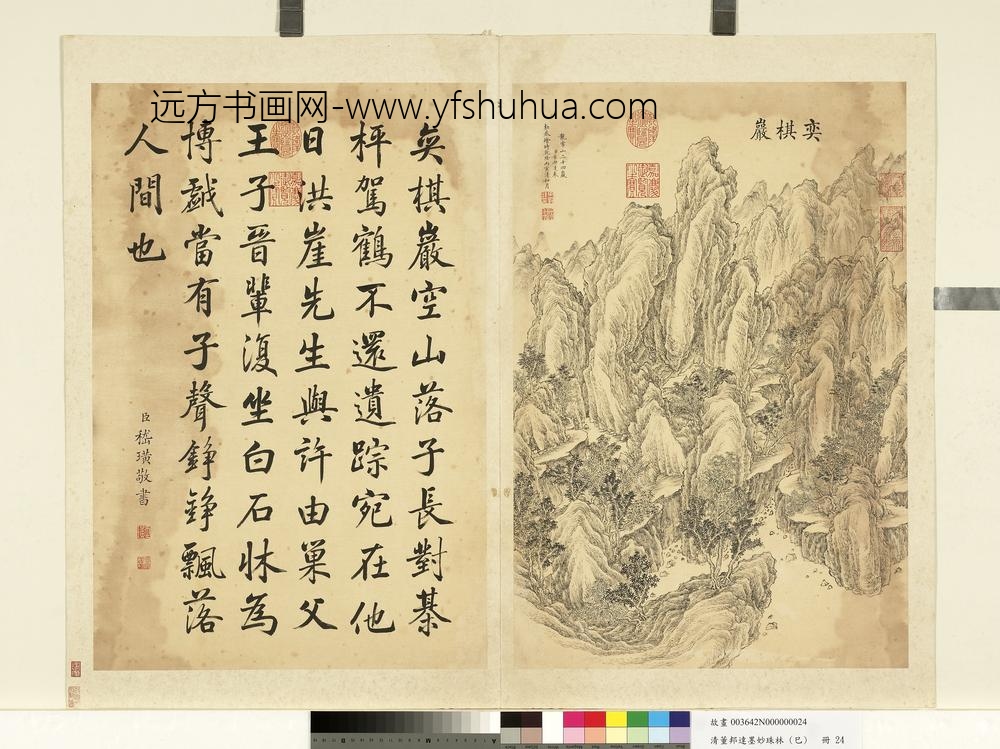 远方书画网-www.yfshuhua.com
奕棋巖
奕棋巖空山落子長對棊
枰駕鶴不還遺踪宛在他
日洪崖先生與許由巢父
王子晉輩復坐白石牀為
博戲當有子聲錚錚飄落
人間也
臣嵇璜敬書
故畫 003642N000000024
清董邦達墨妙珠林（巳） 冊 24